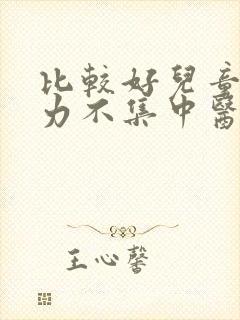 比較好兒童
力不集中醫
王心馨